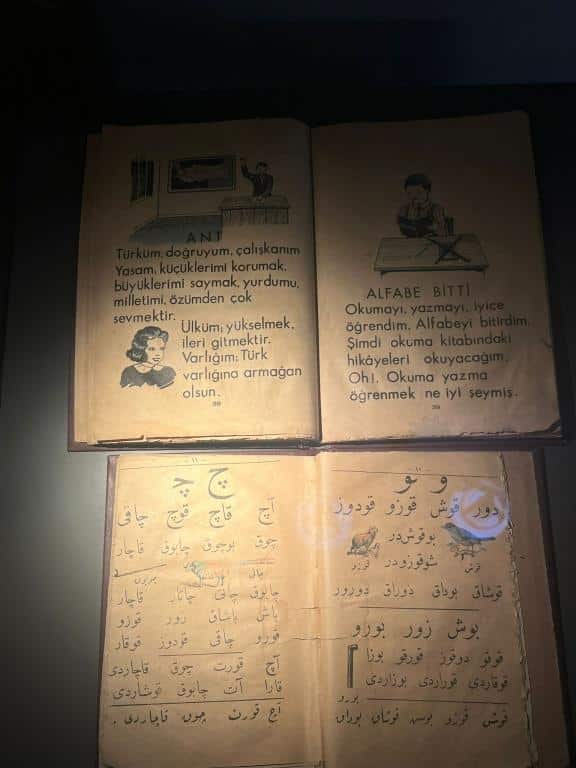 ANT
Türküm, doğruyum, çalışkanım
Yasam; küçüklerimi korumak,
büyüklerimi saymak, yurdumu,
milletimi, özümden çok
sevmektir.
Ülküm; yükselmek,
ileri gitmektir.
Varlığım; Türk
varlığına armağan
olsun.
ALFABE BİTTİ
Okumayı, yazmayı, iyice
öğrendim. Alfabeyi bitirdim.
Şimdi okuma kitabındaki
hikâyeleri okuyacağım.
Oh!. Okuma yazma
öğrenmek ne iyi şeymiş.
دور قوش قوزو قودوز
بوقوشدر
شوقوزودر
قوش
قوزو
قوشاق بوداق دوراق دورور
بوش زور بورو
بورو
قوش قوزو
- ١١ -
چ چ
آچ قاچ قوچ چاقی
چوق بوچوق چابوق قاچار
چابوق چاقی چاتار قاچار
باش باشاق زور قوزو
قوزو چاقی قودوز قوقار
آچ قورت چوق قاچاردی
قارا آت چابوق قوشاردی
آچ قورت چوق قاچاردی .